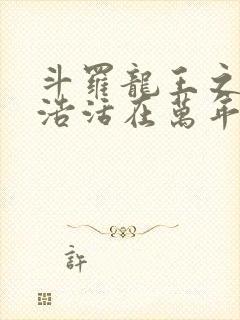 斗羅龍王之
浩活在萬年
許